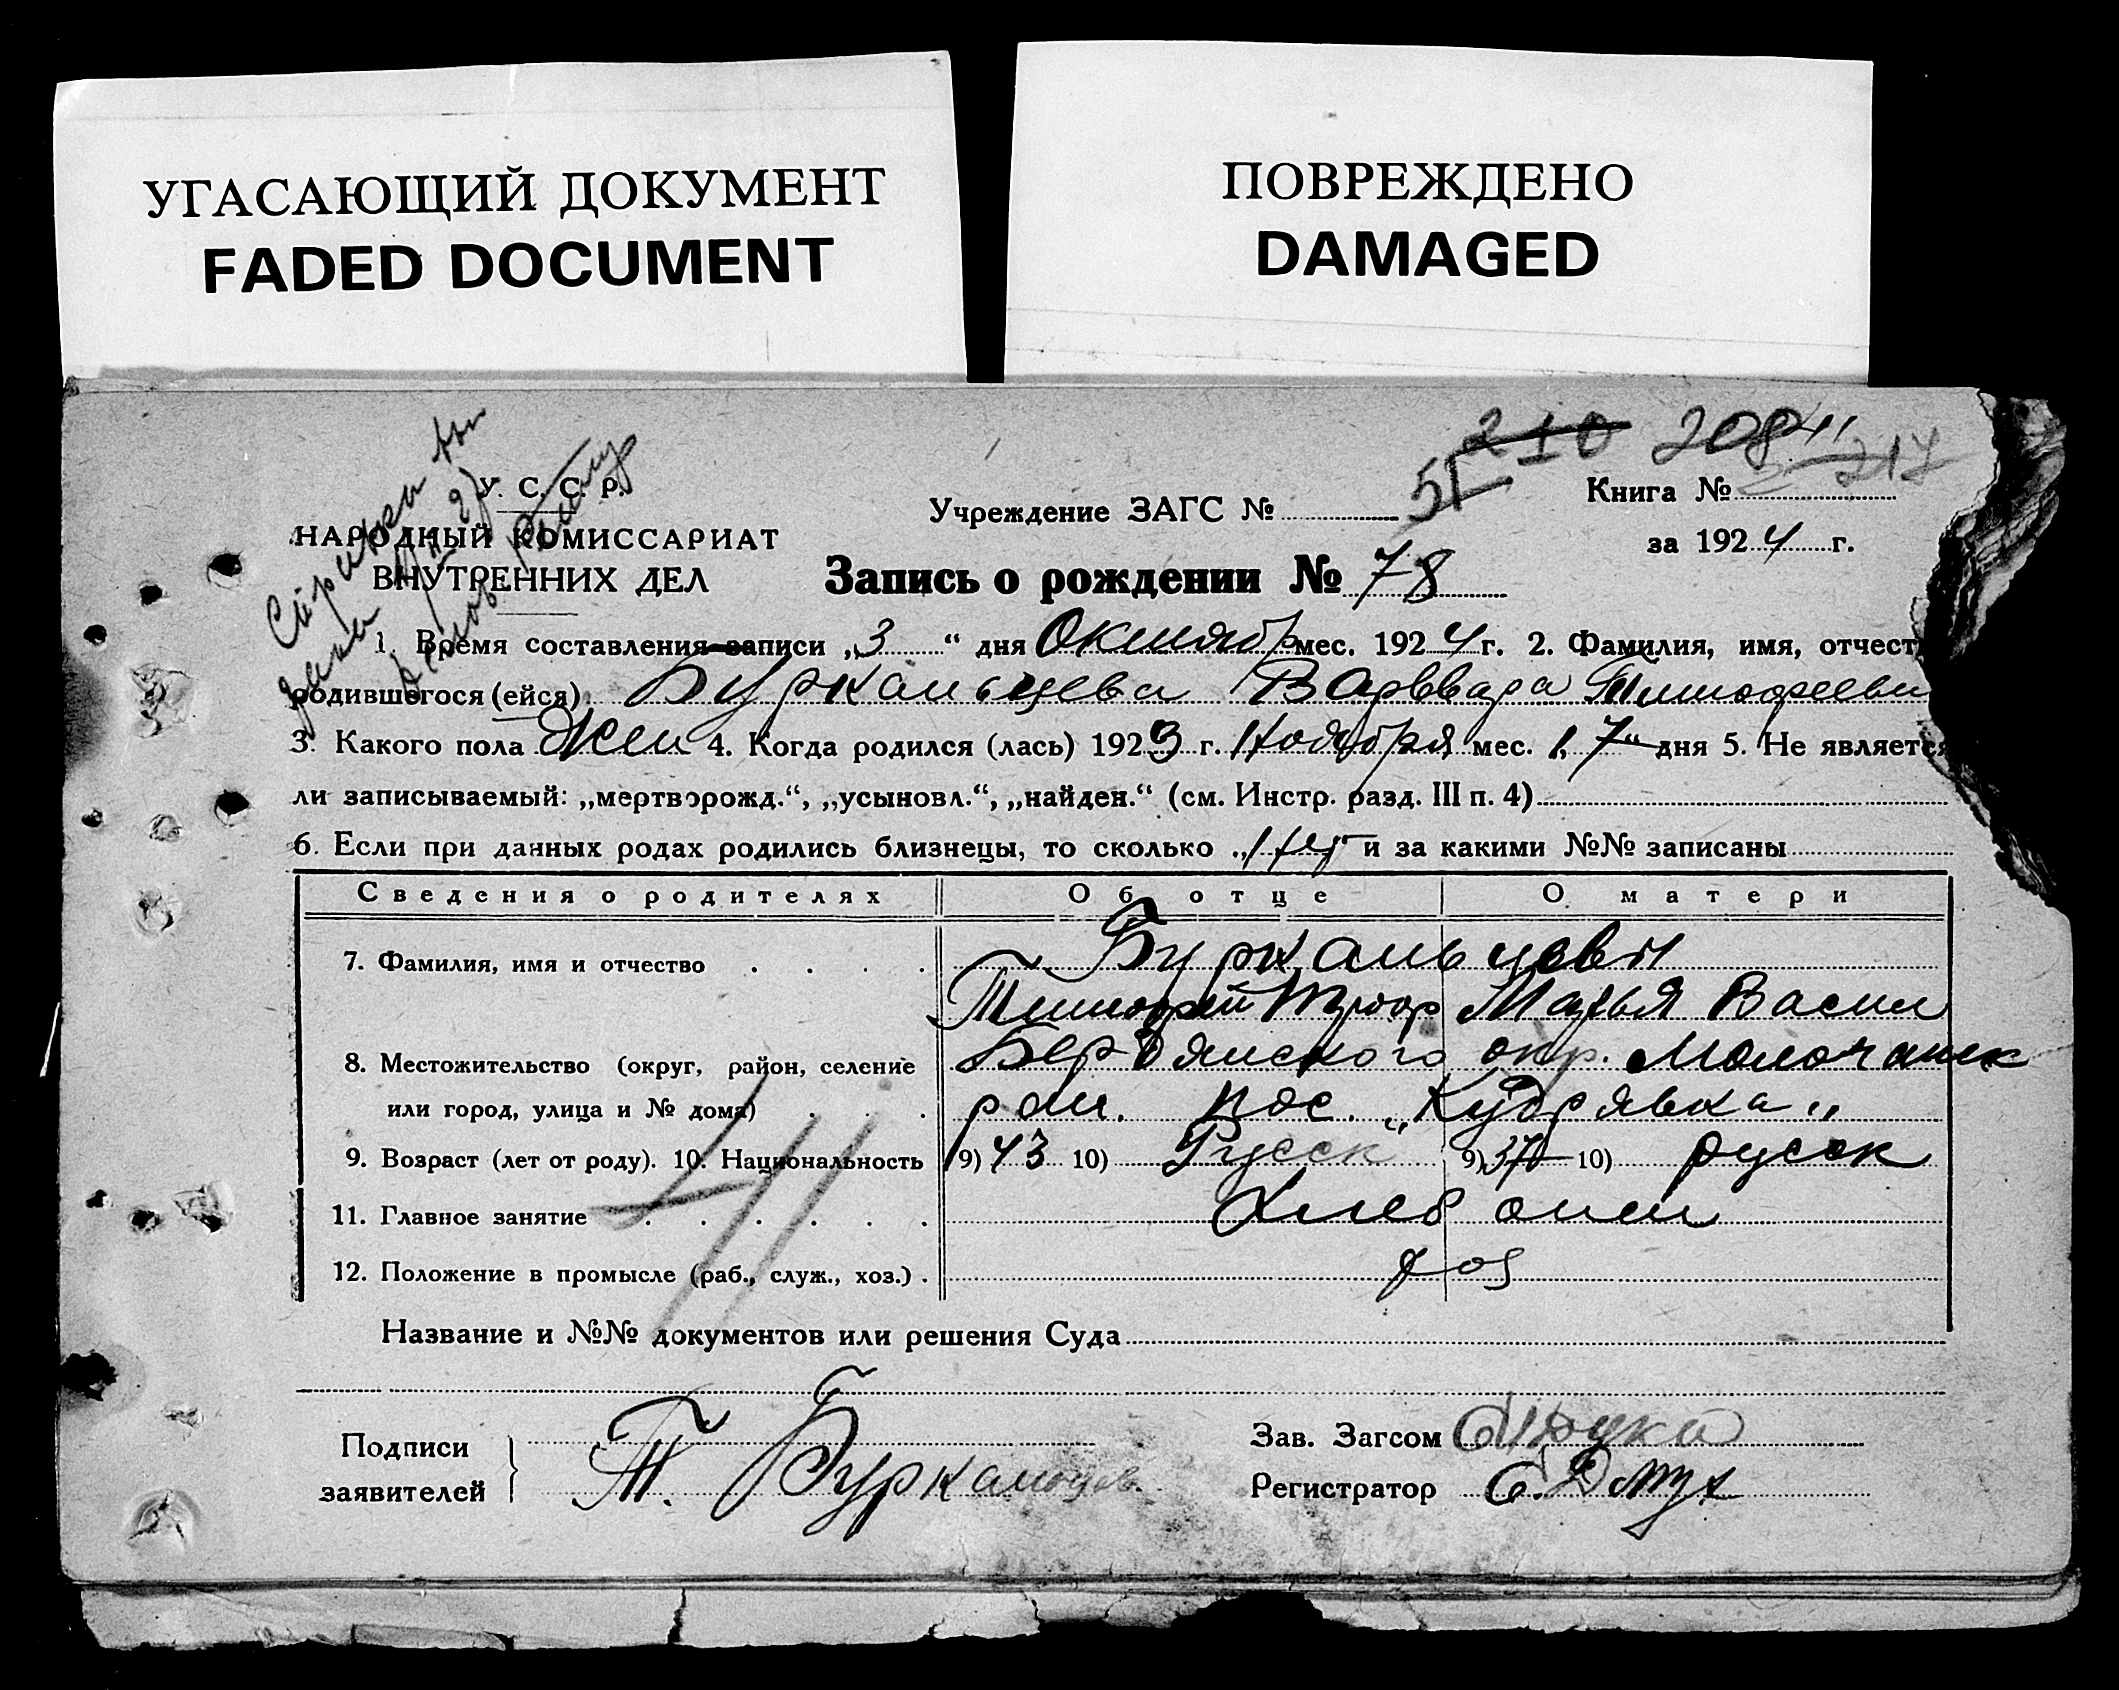 УГАСАЮЩИЙ ДОКУМЕНТ
FADED DOCUMENT
ПОВРЕЖДЕНО
DAMAGED
210 208
217
Справка
У. С. С. Р.
НАРОДНЫЙ КОМИССАРИАТ
ВНУТРЕННИХ ДЕЛ
Учреждение ЗАГС № 51
Книга №
за 1924 г.
Запись о рождении № 78
1. Время составления записи „3“ дня Октября мес. 1924 г. 2. Фамилия, имя, отчест
родившегося (ейся) Буркальцева Варвара Тимофеевн
3. Какого пола Жен 4. Когда родился (лась) 1923 г. Ноября мес. „17“ дня 5. Не является
ли записываемый: „мертворожд.“, „усыновл.“, „найден.“ (см. Инстр. разд. III п. 4)
6. Если при данных родах родились близнецы, то сколько „ Нет и за какими №№ записаны
Сведения о родителях Об отце О матери
7. Фамилия, имя и отчество Буркальцевы
Тимофей Марья Васил
8. Местожительство (округ, район, селение Бердянского окр. Молочанск
или город, улица и № дома) рай. пос. „Кудрявка"
9. Возраст (лет от роду). 10. Национальность 9) 43 10) Русск 9) 37 10) русск
11. Главное занятие Хлебопаш
12. Положение в промысле (раб., служ., хоз.) . хоз
Название и №№ документов или решения Суда
Подписи
заявителей
Т. Буркальцев
Зав. Загсом
Регистратор